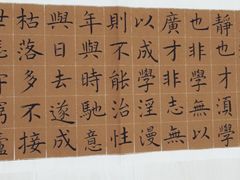 靜也才須學
也非學無以
廣才非志無
以成學淫漫
則不能治性
年與時馳意
與日去遂成
枯落多不接
世悲守窮廬